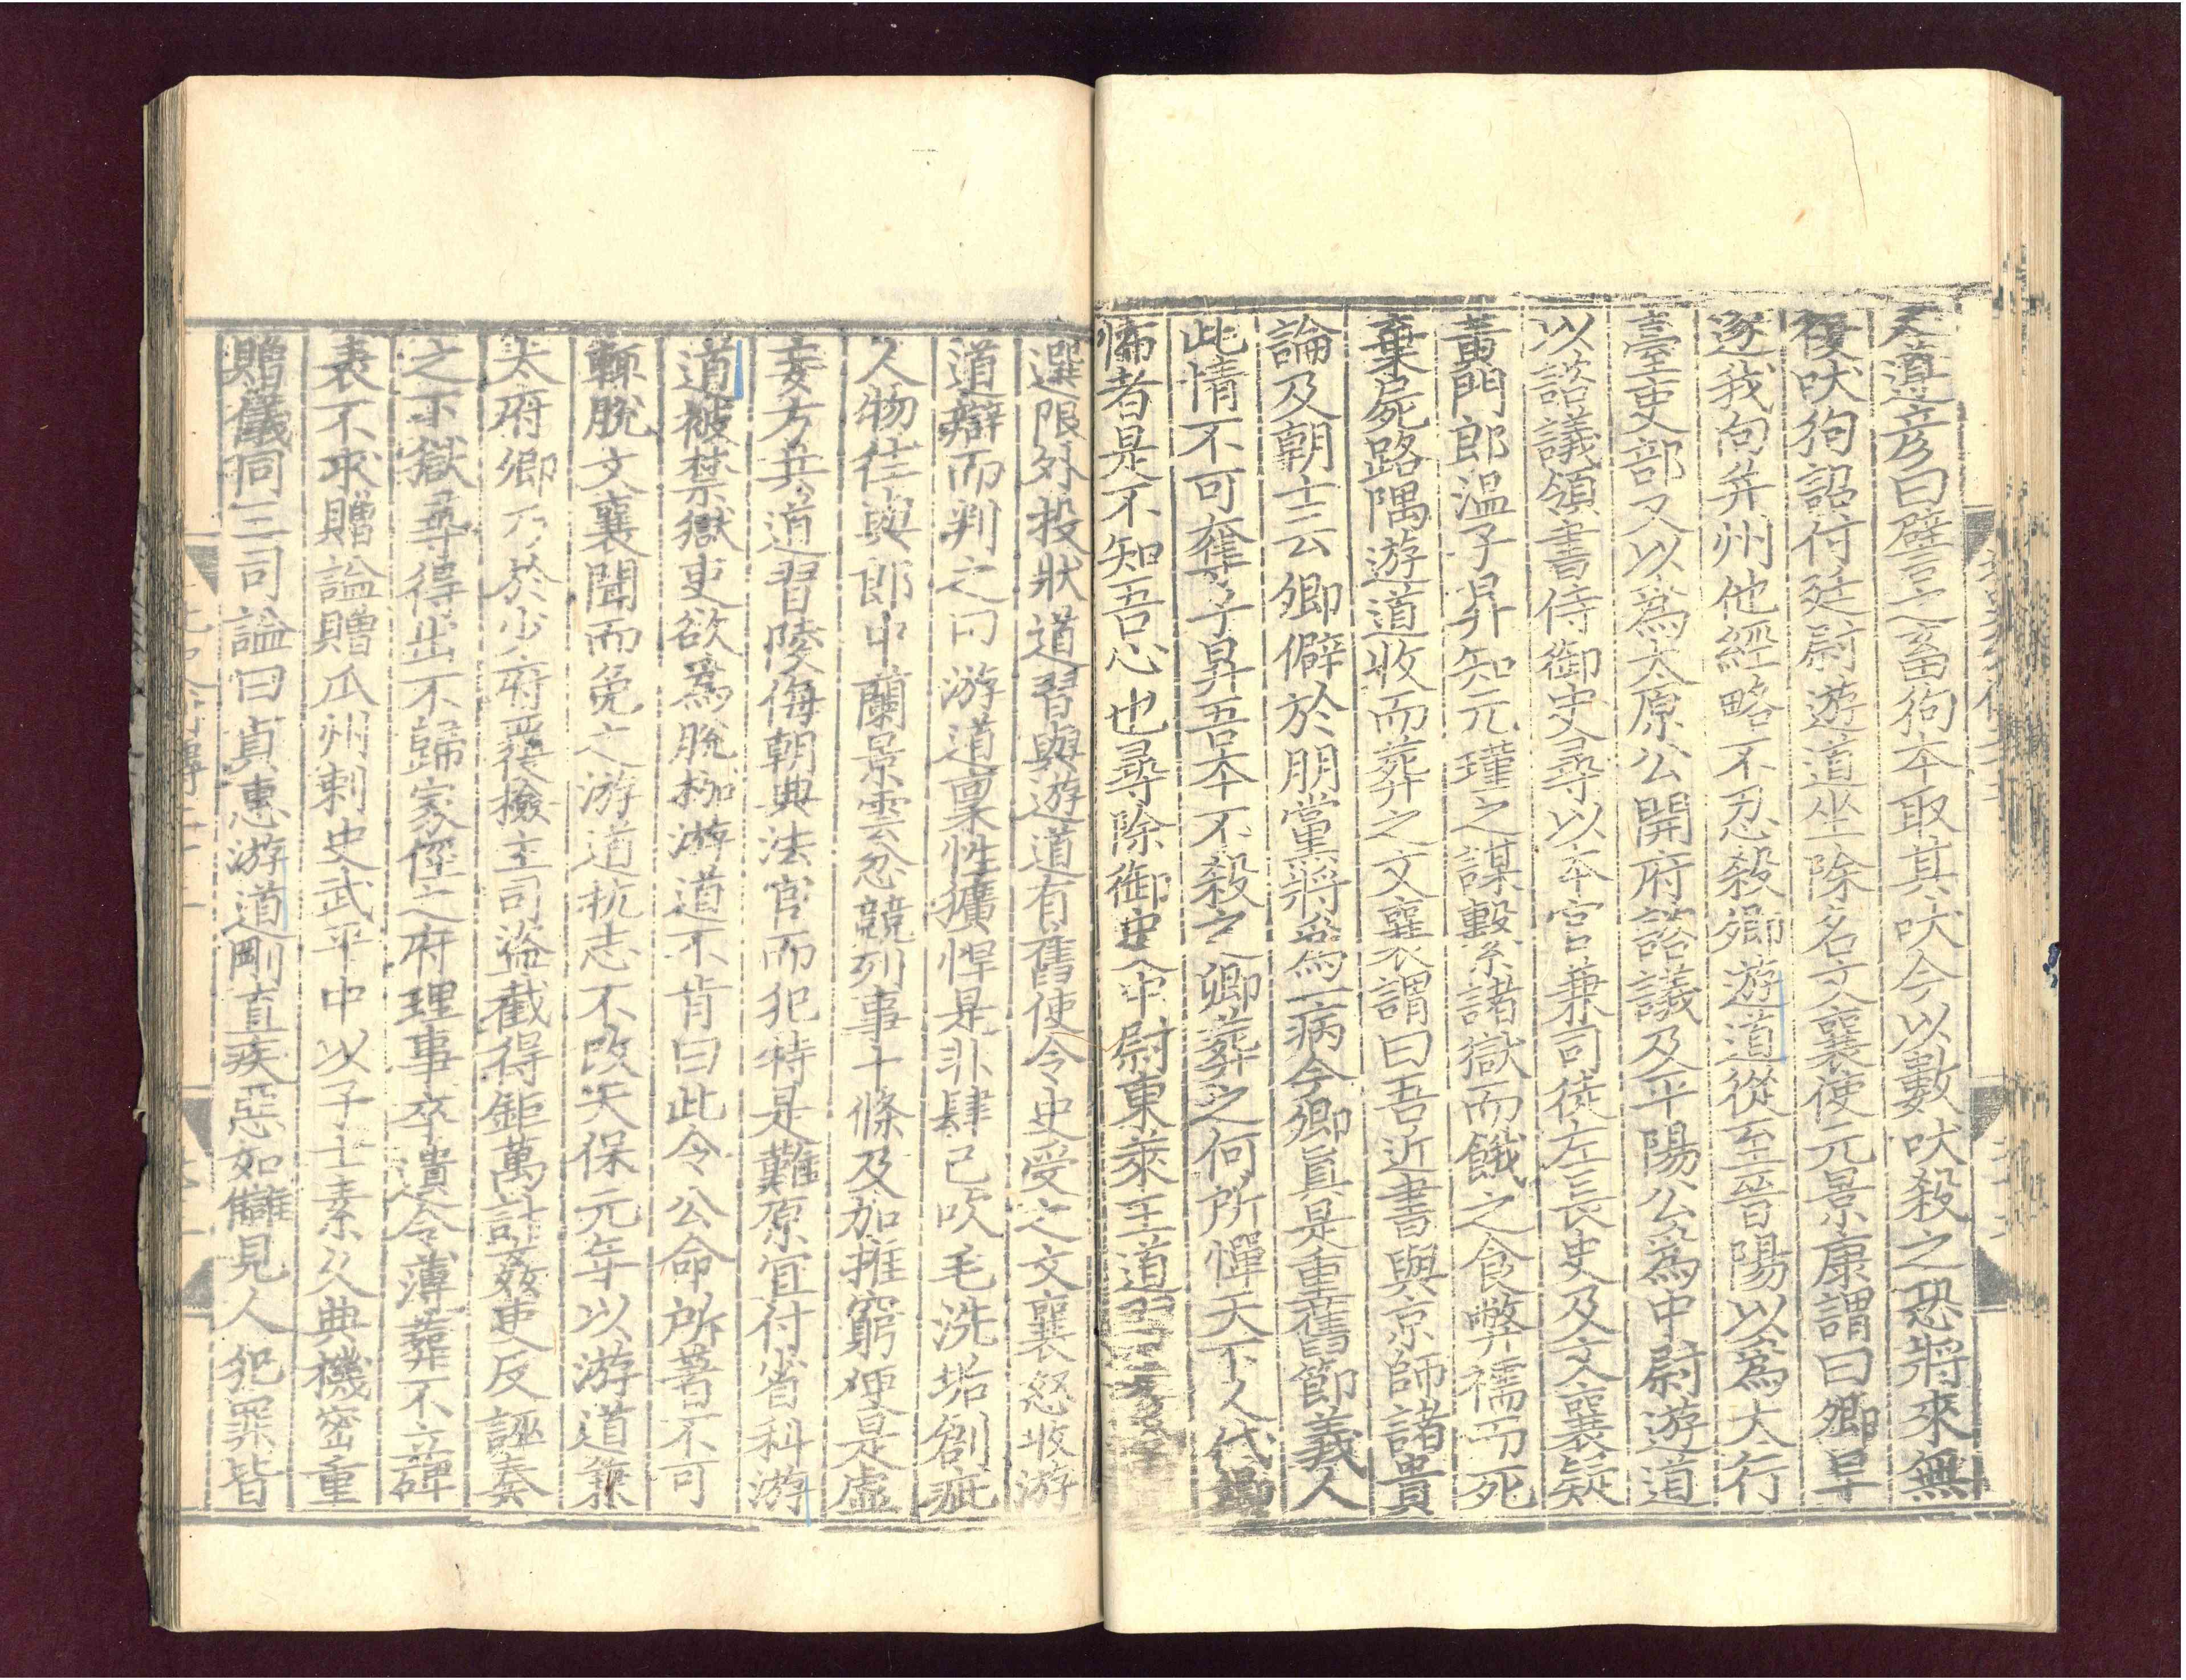 遵彦曰譬之畜狗本取其吠今以數吠殺之恐將來無
復吠狗詔付廷尉遊道坐除名文襄使元景康謂曰卿早
逐我向并州他經略不忍殺卿遊道從至晉陽以爲大行
臺吏部又以爲太原公開府諮議及平陽公爲中尉遊道
以諮議領書侍御史尋以本官兼司徒左長史及文襄疑
黃門郎溫子昇知元瑾之謀繫諸獄而餓之食弊襦而死
棄屍路隅遊道收而葬之文襄謂曰吾近書與京師諸貴
論及朝士云卿僻於朋黨將爲一病今卿真是重舊節義人
此情不可奪子昇吾本不殺之卿葬之何所憚天下人代
怖者是不知吾心也尋除御史中尉東萊王道習
選限外投狀道習與遊道有舊使令史受之文襄怒收游
道辯而判之曰游道稟性獷悍是非肆己吹毛洗垢創疵
人物往與郎中蘭景雲忿競列事十條及加推窮便是虛
妄方共道習陵侮朝典法官而犯特是難原宜付省科游
道被禁獄吏欲爲脫枷游道不肯曰此令公命所著不可
輒脫文襄聞而免之游道抗志不改天保元年以游道兼
太府卿乃於少府覆撿主司盜截得鉅萬計姦吏反誣奏
之下獄尋得出不歸家徑之府理事卒遺令薄葬不立碑
表不求贈謚贈瓜州刺史武平中以子士素久典機密重
贈儀同三司謚曰貞惠游道剛直疾惡如讎見人犯罪皆